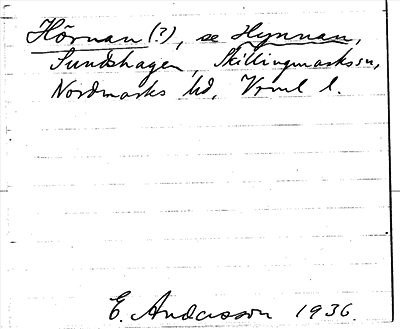 Hörnan (?), se Hynnan,
Sundshagen, Skillingmarks sn,
Nordmarks hd, Vrml l.
E. Andersson 1936.